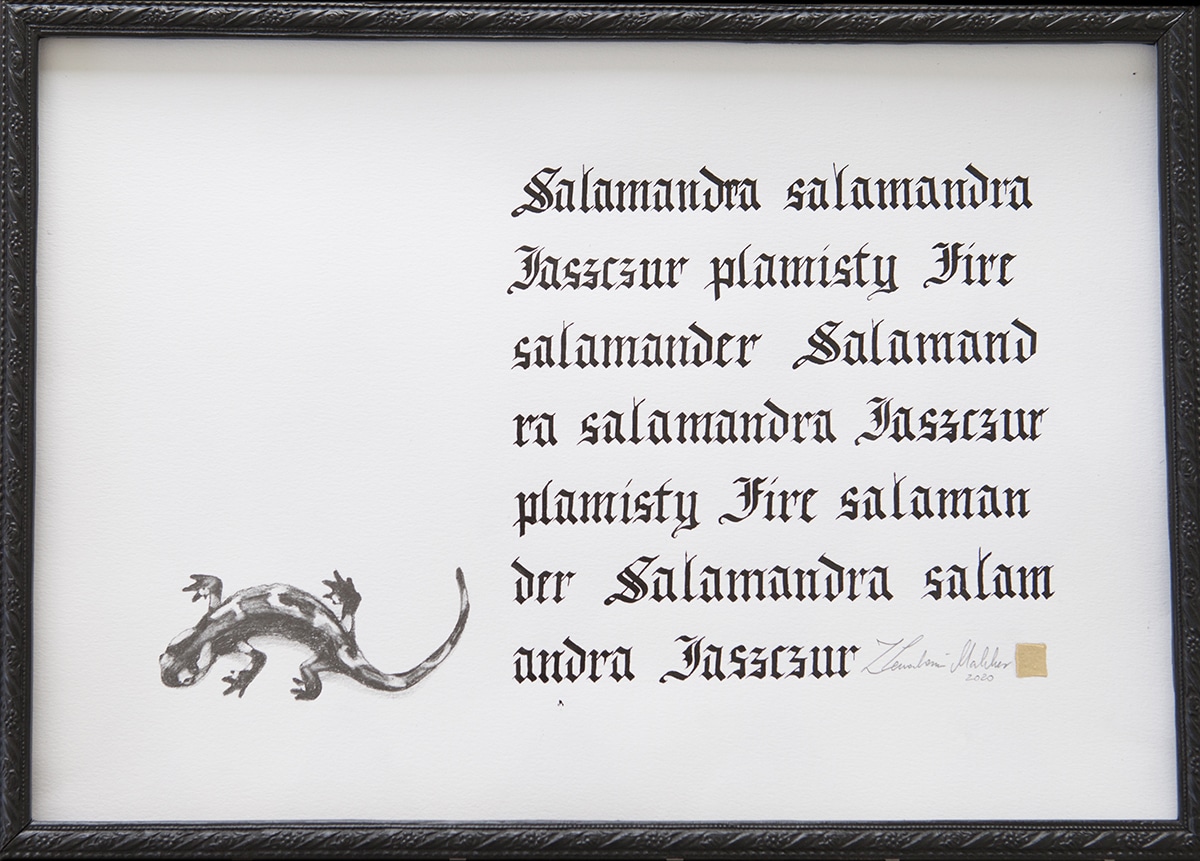 Salamandra salamandra
Jaszczur plamisty Fire
salamander Salamand
ra salamandra Jaszczur
plamisty Fire salaman
der Salamandra salam
andra Jaszczur
2020